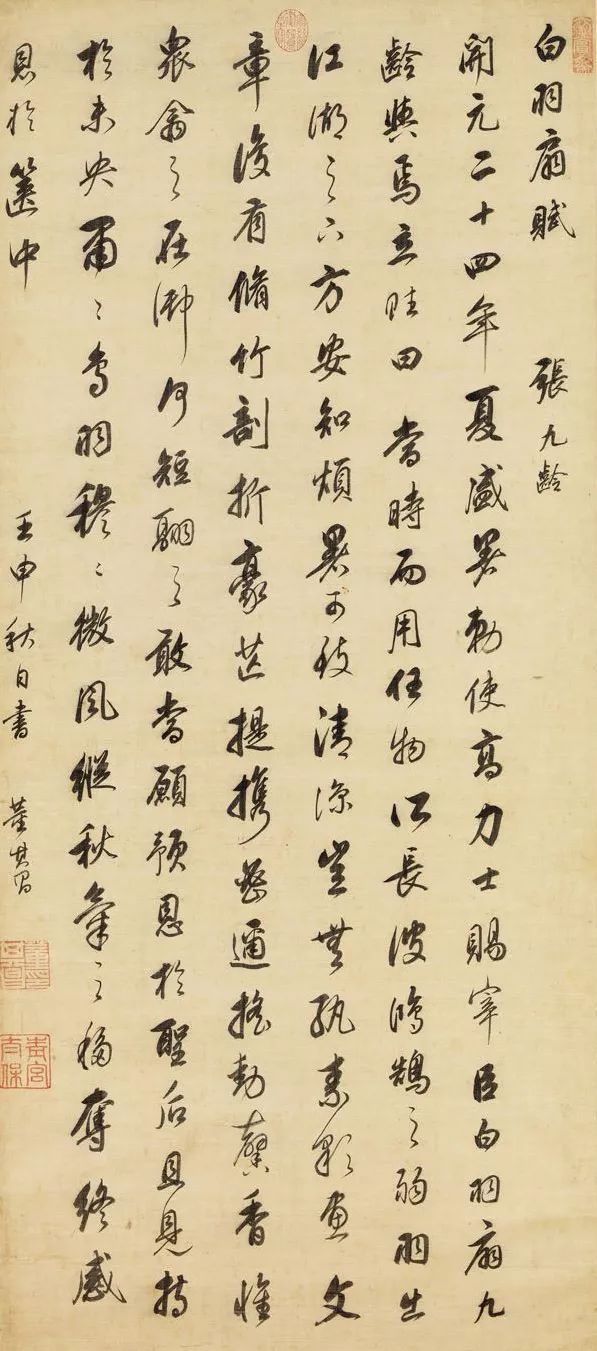 白羽扇賦 張九齡
開元二十四年夏盛暑勅使高力士賜宰臣白羽扇九
齡與焉立賦曰 當時而用任物所長彼鴻鵠之弱羽出
江湖之下方安知煩暑可致清涼豈無紈素彩畫文
章復有脩竹剖析豪芒提攜密邇搖動馨香惟
衆禽之在御何短翮之敢當願預恩於聖后且見持
於未央肅〻鳥羽穆〻微風縱秋氣之移奪終感
恩於篋中 壬申秋日書 董其昌
青宮太保